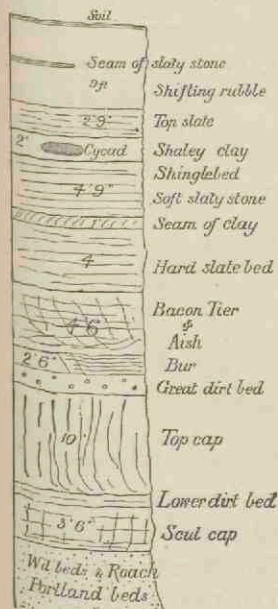 Soil
Seam of slaty stone
Shifting rubble
2'9" Top slate
2" Cycad Shaley clay
Shinglebed
4'9" Soft slaty stone
Seam of clay
4 Hard slate bed
Bacon Tier
4'6" &
Aish
2'6" Bur
Great dirt bed
10' Top cap
Lower dirt bed
3'6" Scul cap
& Roach
Portland beds